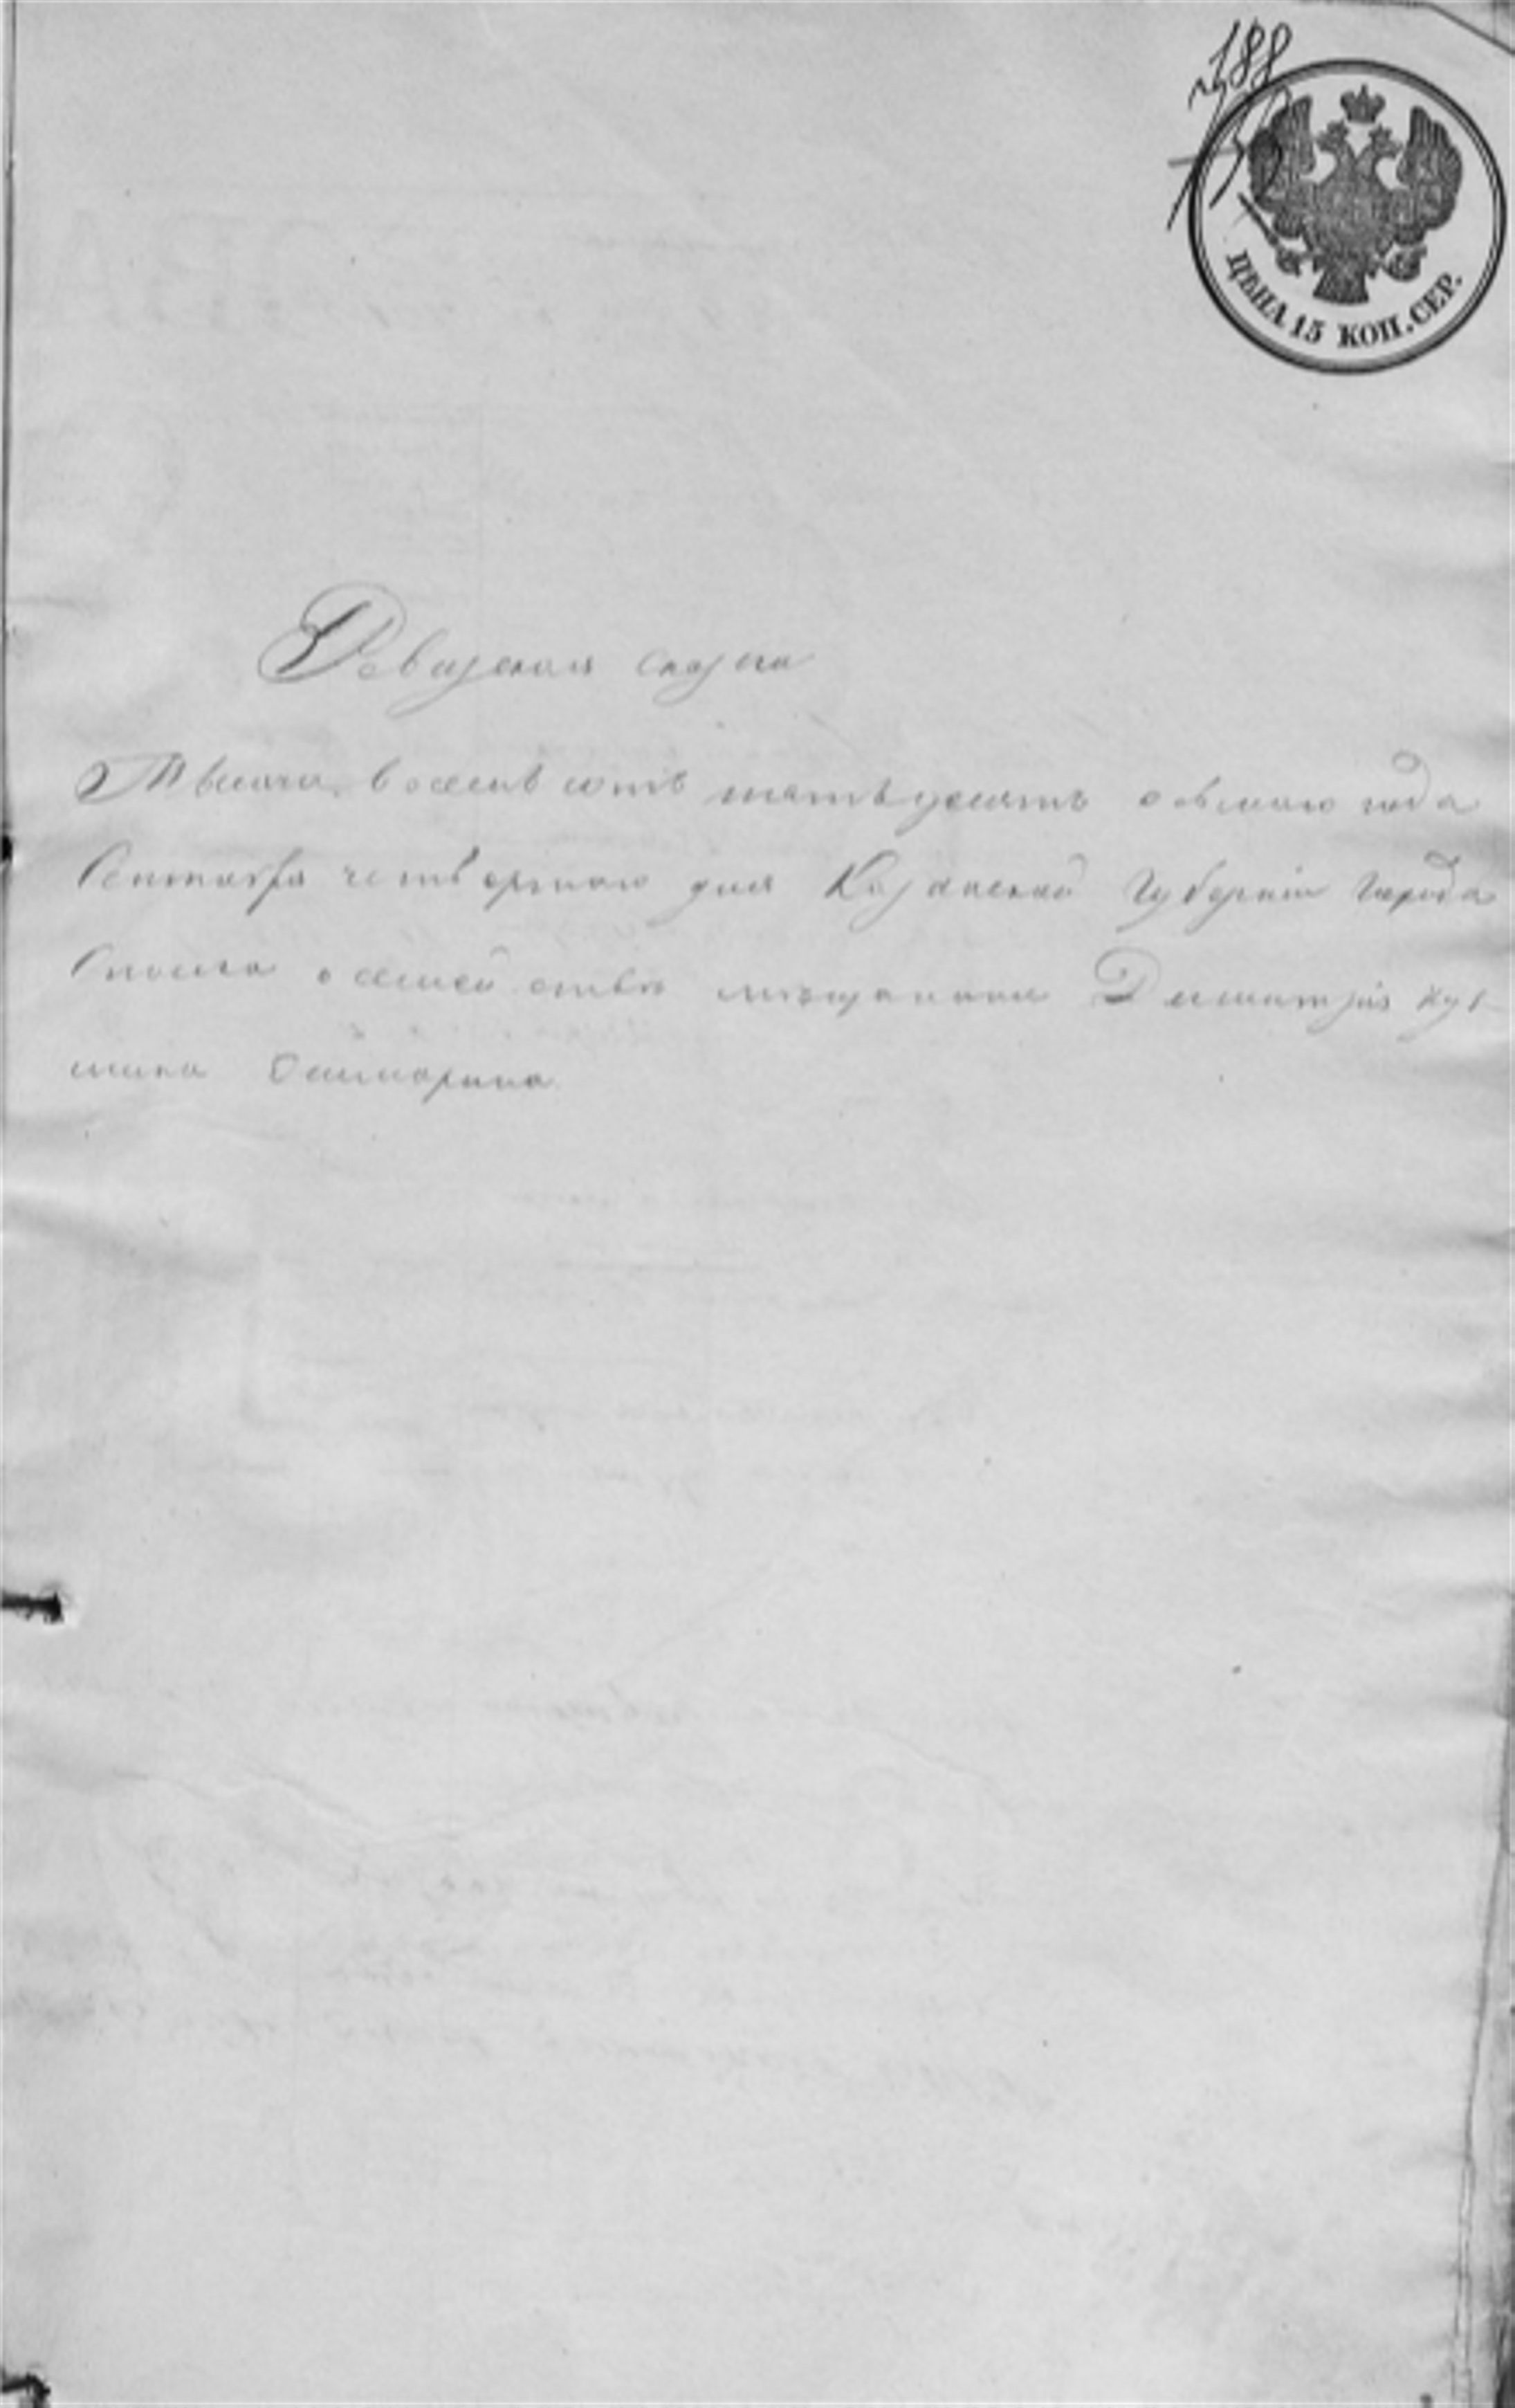 188
ЦѢНА 15 КОП. СЕР.
Ревизская сказка
Тысяча восемь сотъ пятьдесятъ осьмаго года
Сентября четвертаго дня Казанской Губерніи города
Спаска о семействѣ мещанина Димитрія Кузь
мина